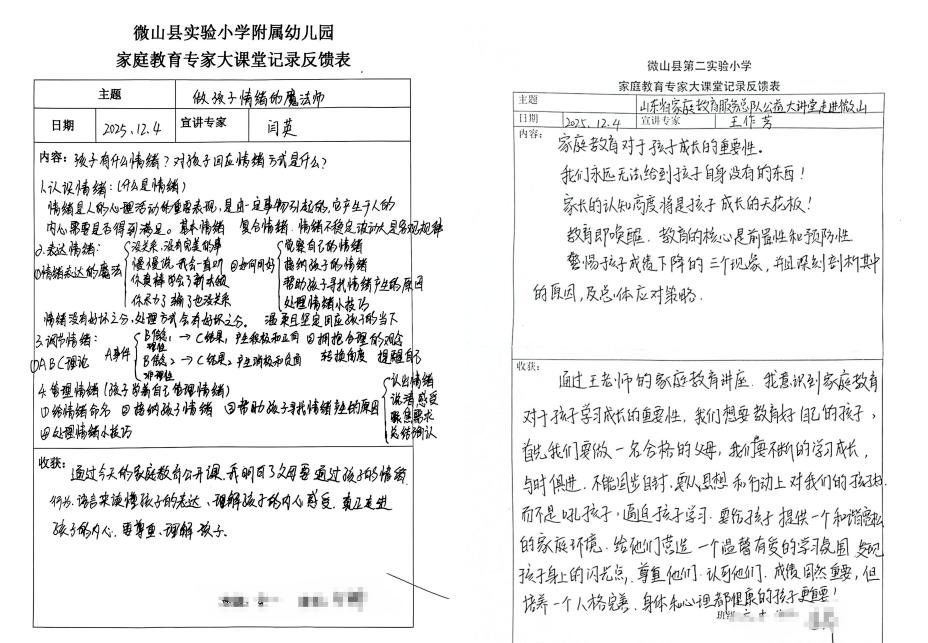 微山县实验小学附属幼儿园
家庭教育专家大课堂记录反馈表
主题
做孩子情绪的魔法师
日期
2025.12.4
宣讲专家
闫英
内容：孩子有什么情绪？对孩子回应情绪方式是什么？
1.认识情绪：(什么是情绪)
情绪是人的心理活动的重要表现，是由一定事物引起的，它产生于人的
内心需要是否得到满足。基本情绪 复合情绪 情绪不稳定波动大是客观规律
2.表达情绪：
①情绪表达的魔法
没关系，没有完美的事
慢慢说，我会一直听
你真棒 学会了新本领
你尽力了 输了也没关系
②如何回应
觉察自己的情绪
接纳孩子的情绪
帮助孩子寻找情绪产生的原因
处理情绪小技巧
情绪没有好坏之分，处理方式会有好坏之分。 温柔且坚定回应孩子的当下
3.调节情绪：
①ABC理论
A事件
B信念1 → C结果1 产生积极和正向
理性
B信念2 → C结果2 产生消极和负面
非理性
②拥抱合理的观念
转换角度 提醒自己
4.管理情绪(孩子学着自己管理情绪)
①给情绪命名 ②接纳孩子情绪 ③帮助孩子寻找情绪产生的原因
④处理情绪小技巧
认出情绪
说清感受
聚焦需求
总结确认
收获：
通过今天的家庭教育公开课，我明白了父母要通过孩子的情绪
行为、语言来读懂孩子的表达、理解孩子的内心感受，真正走进
孩子的内心，要尊重、理解孩子。
微山县第二实验小学
家庭教育专家大课堂记录反馈表
主题
山东省家庭教育服务总队公益大讲堂走进微山
日期
2025.12.4
宣讲专家
王作芳
内容：
家庭教育对于孩子成长的重要性。
我们永远无法给到孩子自身没有的东西！
家长的认知高度将是孩子成长的天花板！
教育即唤醒，教育的核心是前瞻性和预防性
警惕孩子成绩下降的三个现象，并且深刻剖析其中
的原因，及总体应对策略.
收获：
通过王老师的家庭教育讲座，我意识到家庭教育
对于孩子学习成长的重要性，我们想要教育好自己的孩子，
首先我们要做一名合格的父母，我们要不断的学习成长，
与时俱进，不能固步自封，要从思想和行动上对我们的孩子
而不是吼孩子，逼迫孩子学习，要给孩子提供一个和谐宽松
的家庭环境，给他们营造一个温馨有爱的学习氛围，发现
孩子身上的闪光点，尊重他们，认可他们，成绩固然重要，但
培养一个人格完善、身体和心理都健康的孩子更重要！